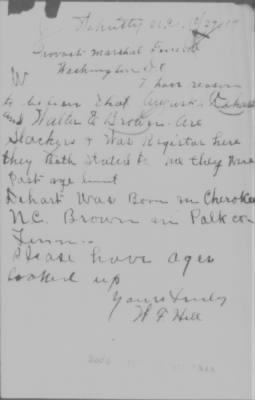 N.C.
Provost Marshal General
Washington D.C.
I have reason
to believe that Dehart
and Walter E Brown are
Slackers & Was Registar here
they both stated to me they were
Past age limit
Dehart Was Born in Cherokee
N.C. Brown in Polk con
Tenn.
Please have ages
looked up
Yours truly
W F Hill